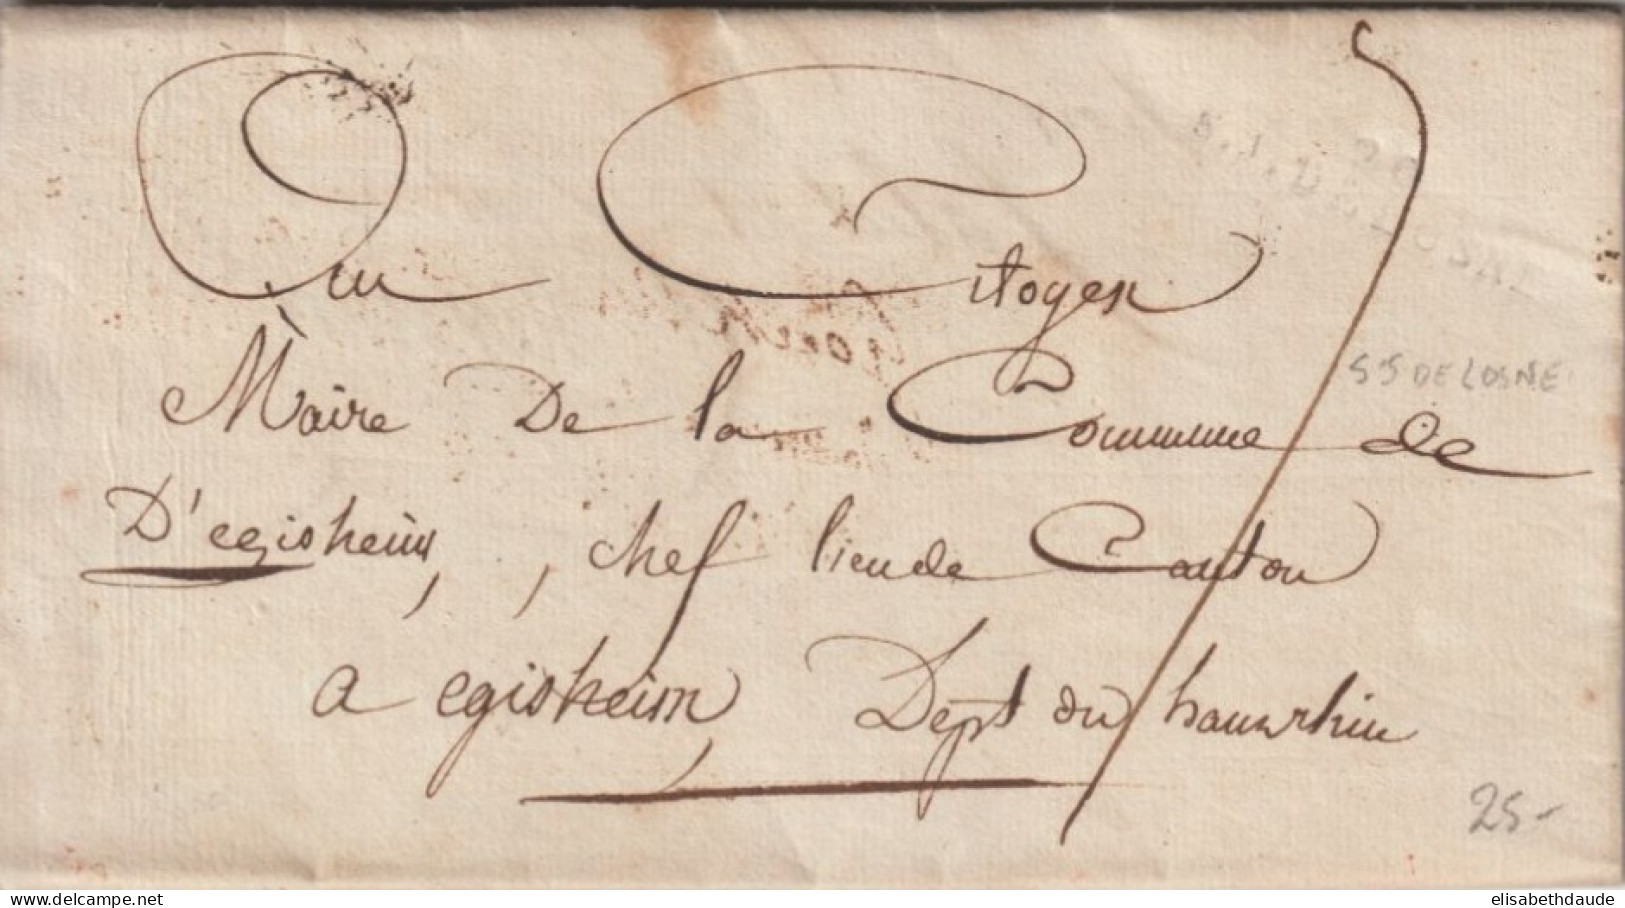 Au Citoyen
Maire De la Commune de
D'egisheim, , chef lieu de Canton
a egisheim, Dept du hauwrhin
S JS DE LOSNE
25-
delcampe.net
elisabethdaude